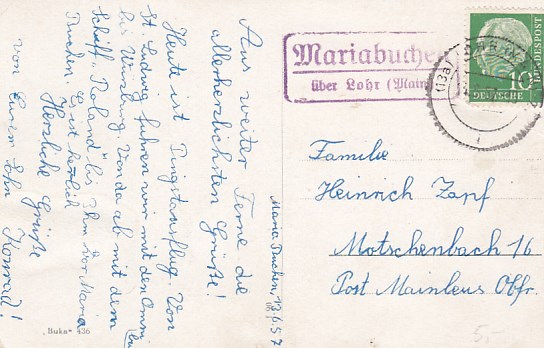 Aus weiter Ferne die
allerherzlichsten Grüße!
Heute ist Pfingstausflug. Von
St. Ludwig fuhren wir mit den Omni
bus
bis Würzburg. Von da ab mit dem
Schiff "Roland" bis
Maria
Buchen.
Herzliche Grüße
von Eurem Sohn
Konrad!
Maria Buchen, 13/6 57
Mariabuchen
über Lohr (Main)
(13a)
10
DEUTSCHE
BUNDESPOST
Familie
Heinrich Zapf
Motschenbach 16
Post Mainleus Obfr.
"Buka" 436
5,-